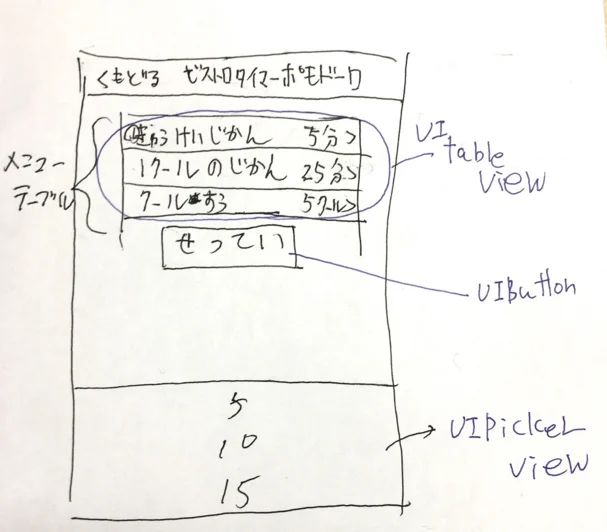 くもどる ビストロタイマーポモドーロ
けいじかん 5分>
1クールのじかん 25分>
クールすう 5クール>
せってい
メニュー
テーブル
UI
table
view
UIButton
5
10
15
UIPicker
view